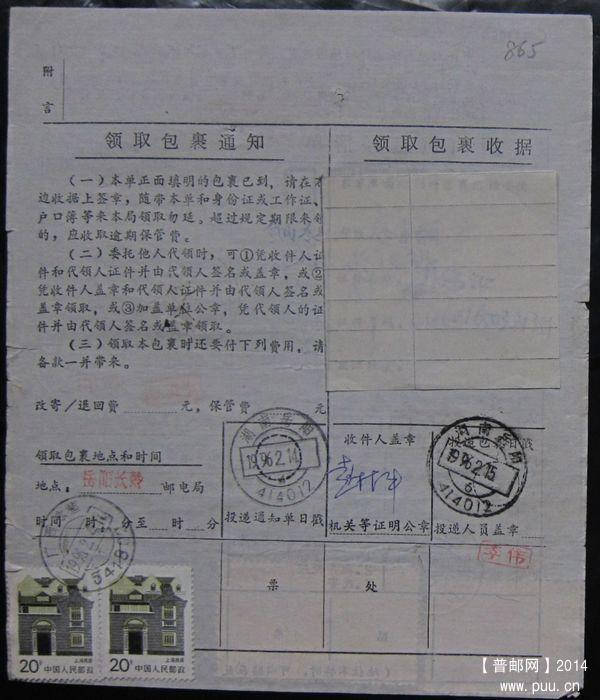 865
附
言
领取包裹通知
领取包裹收据
(一)本单正面填明的包裹已到，请在
边收据上签章，随带本单和身份证或工作证、
户口簿等来本局领取勿延。超过规定期限来领
的，应收取逾期保管费。
(二)委托他人代领时，可①凭收件人证
件和代领人证件并由代领人签名或盖章，或②
凭收件人盖章和代领人证件并由代领人签名或
盖章领取，或③加盖单位公章，凭代领人的证
件并由代领人签名或盖章领取。
(三)领取本包裹时还要付下列费用，请
备款一并带来。
改寄/退回费 元，保管费 元
湖南岳阳
1996.2.14
414012
收件人盖章
湖南岳阳
1996.2.15
6
414012
领取包裹地点和时间
地点： 岳阳长岭 邮电局
时间 时 分至 时 分
投递通知单日戳
机关等证明公章
投递人员盖章
李伟
票 处
20分 中国人民邮政
上海民居
20分 中国人民邮政
上海民居
【普邮网】2014
www.puu.cn